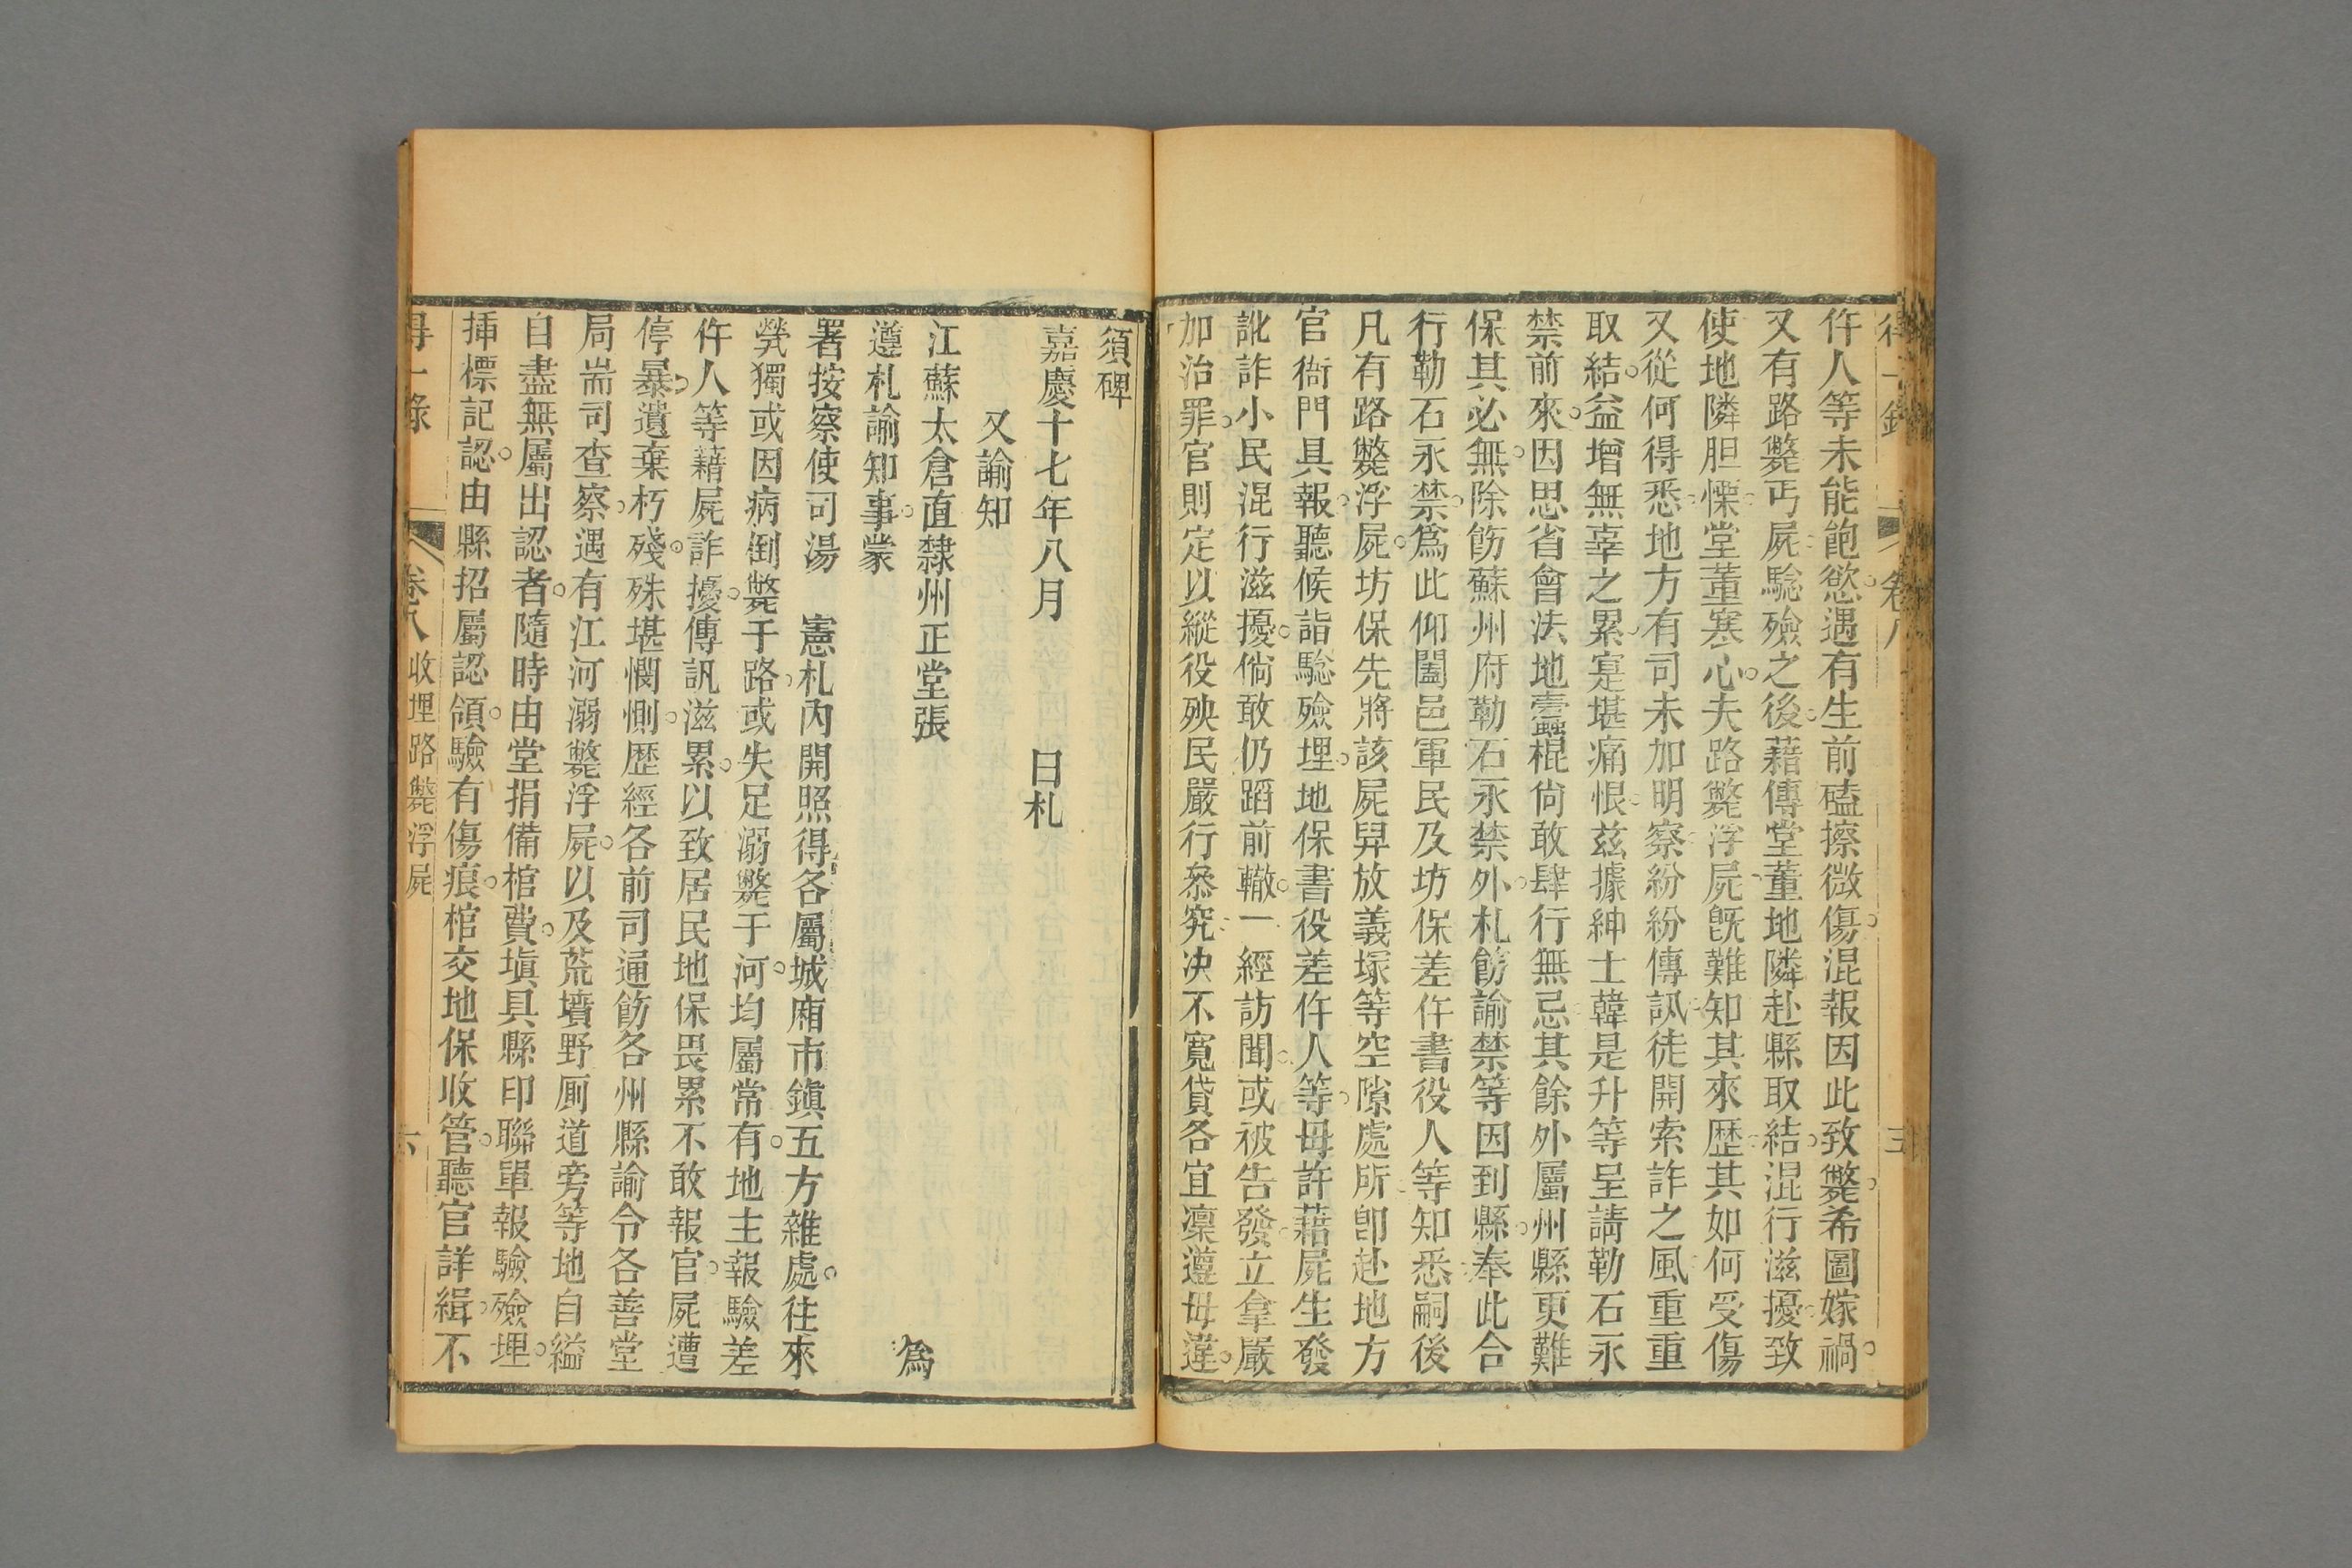 仵人等未能飽慾遇有生前磕擦微傷混報因此致斃希圖嫁禍
又有路斃丐屍騐殮之後藉傳堂董地隣赴縣取結混行滋擾致
使地隣胆慄堂董寒心夫路斃浮屍旣難知其來歴其如何受傷
又從何得悉地方有司未加明察紛紛傳訊徒開索詐之風重重
取結益增無辜之累寔堪痛恨茲據紳士韓是升等呈請勒石永
禁前來因思省會法地蠧棍尙敢肆行無忌其餘外屬州縣更難
保其必無除飭蘇州府勒石永禁外札飭諭禁等因到縣奉此合
行勒石永禁爲此仰闔邑軍民及坊保差仵書役人等知悉嗣後
凡有路斃浮屍坊保先將該屍舁放義塚等空隙處所卽赴地方
官衙門具報聽候詣騐殮埋地保書役差仵人等毋許藉屍生發
訛詐小民混行滋擾倘敢仍蹈前轍一經訪聞或被告發立拿嚴
加治罪官則定以縱役殃民嚴行叅究决不寬貸各宜凜遵毋違
須碑
嘉慶十七年八月　　日札
又諭知
江蘇太倉直隸州正堂張　　爲
遵札諭知事蒙
署按察使司湯　憲札內開照得各屬城廂市鎭五方雜處往來
煢獨或因病倒斃于路或失足溺斃于河均屬常有地主報驗差
仵人等藉屍詐擾傳訊滋累以致居民地保畏累不敢報官屍遭
停暴遺棄朽殘殊堪憫惻歴經各前司通飭各州縣諭令各善堂
局耑司查察遇有江河溺斃浮屍以及荒墳野厠道旁等地自縊
自盡無屬出認者隨時由堂捐備棺費塡具縣印聯單報驗殮埋
揷標記認由縣招屬認領驗有傷痕棺交地保收管聽官詳緝不
得一錄　卷八　收埋路斃浮屍　六